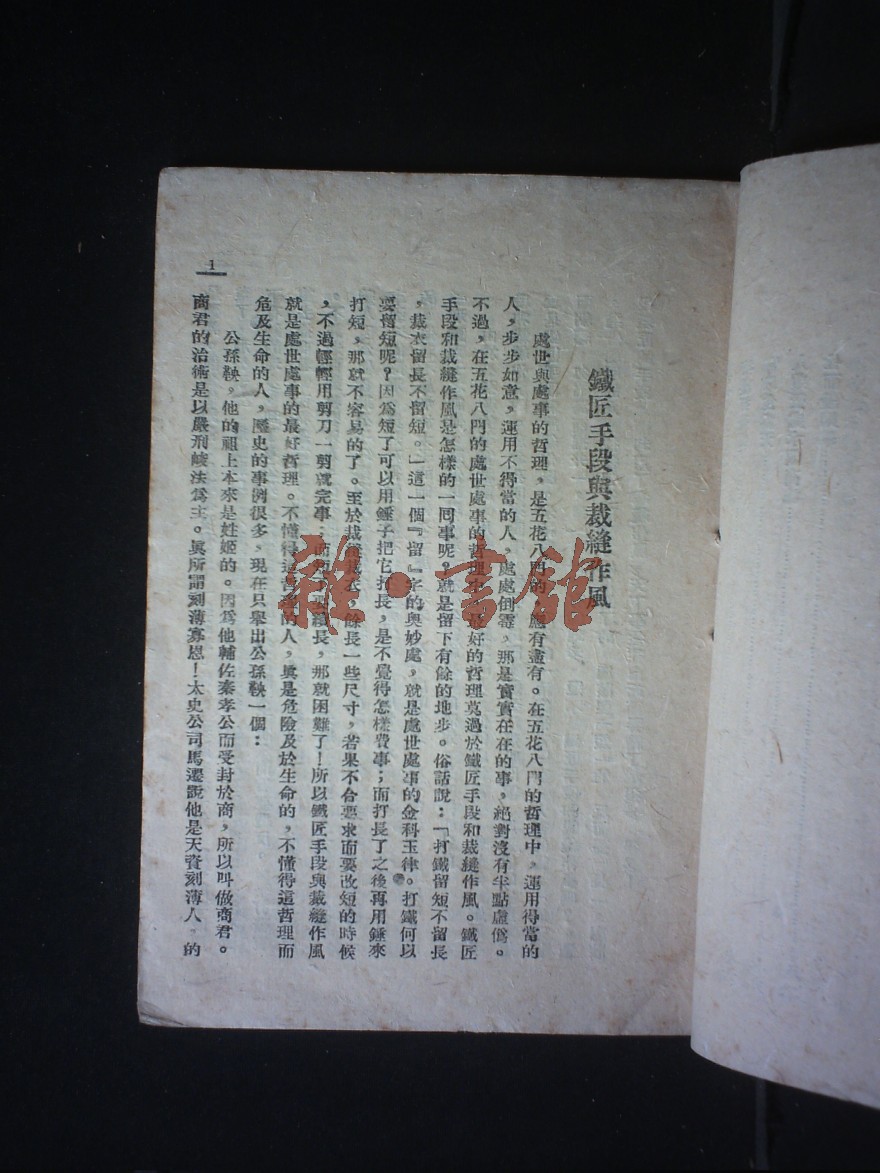 鐵匠手段與裁縫作風
處世與處事的哲理，是五花八門的，應有盡有。在五花八門的哲理中，運用得當的
人，步步如意，運用不得當的人，處處倒霉，那是實實在在的事，絕對沒有半點虛僞。
不過，在五花八門的處世處事的哲理中，最好的哲理莫過於鐵匠手段和裁縫作風。鐵匠
手段和裁縫作風是怎樣的一回事呢？就是留下有餘的地步。俗話說：「打鐵留短不留長
，裁衣留長不留短。」這一個『留』字的奧妙處，就是處世處事的金科玉律。打鐵何以
要留短呢？因爲短了可以用錘子把它打長，是不覺得怎樣費事；而打長了之後再用錘來
打短，那就不容易的了。至於裁縫裁衣，餘長一些尺寸，若果不合要求而要改短的時候
，不過輕輕用剪刀一剪就完事，而短了要續長，那就困難了！所以鐵匠手段與裁縫作風
就是處世處事的最好哲理。不懂得這哲理的人，眞是危險及於生命的，不懂得這哲理而
危及生命的人，歷史的事例很多，現在只舉出公孫鞅一個：
公孫鞅，他的祖上本來是姓姬的。因爲他輔佐秦孝公而受封於商，所以叫做商君。
商君的治術是以嚴刑峻法爲主。眞所謂刻薄寡恩！太史公司馬遷說他是天資刻薄人，的
1
雜·書館